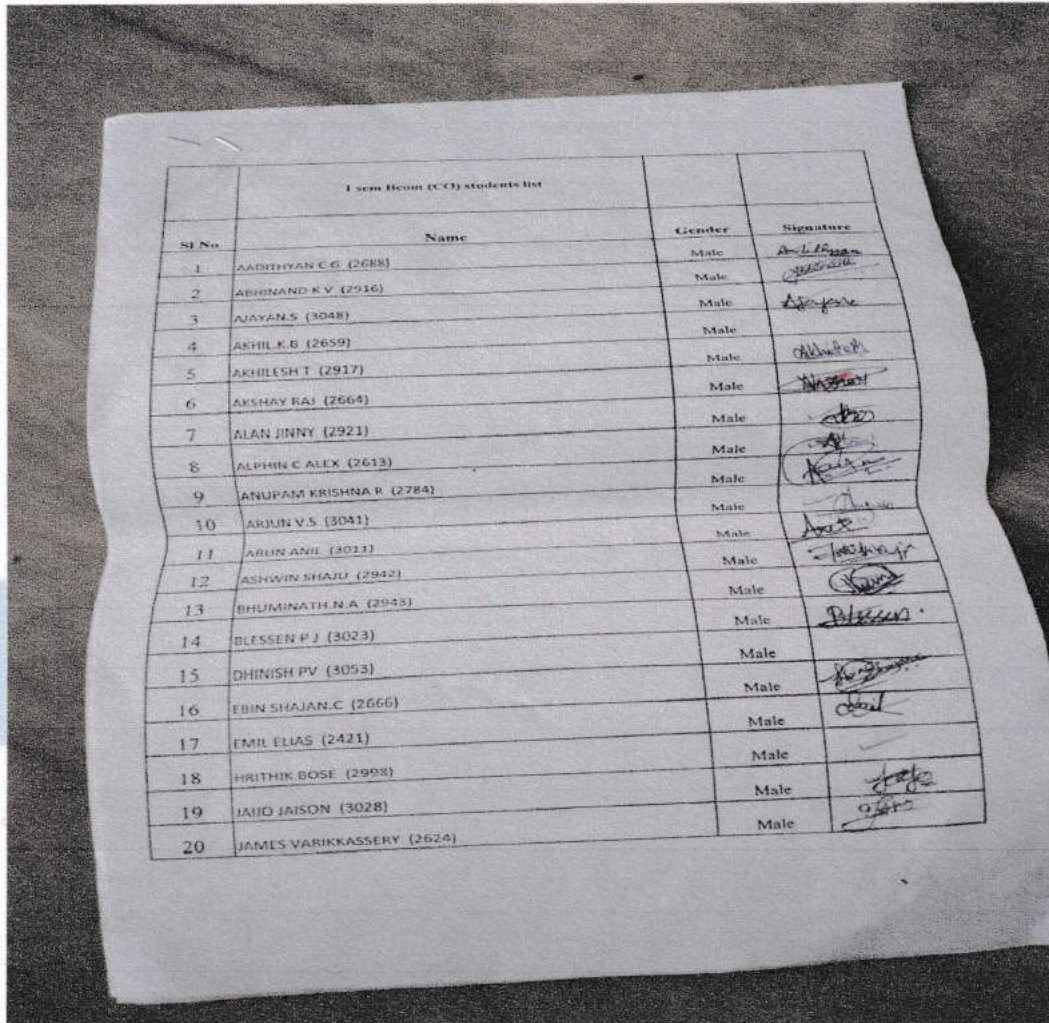 I sem Bcom (CO) students list
Sl No Name Gender Signature
1 AADITHYAN C G (2688) Male
2 ABHINAND K V (2916) Male
3 AJAYAN.S (3048) Male
4 AKHIL.K.B (2659) Male
5 AKHILESH T (2917) Male
6 AKSHAY RAJ (2664) Male
7 ALAN JINNY (2921) Male
8 ALPHIN C ALEX (2613) Male
9 ANUPAM KRISHNA R (2784) Male
10 ARJUN V.S (3041) Male
11 ARUN ANIL (3011) Male
12 ASHWIN SHAJU (2942) Male
13 BHUMINATH.N.A (2943) Male
14 BLESSEN P J (3023) Male Blessen
15 DHINISH PV (3053) Male
16 EBIN SHAJAN.C (2666) Male
17 EMIL ELIAS (2421) Male
18 HRITHIK BOSE (2998) Male
19 JAIJO JAISON (3028) Male
20 JAMES VARIKKASSERY (2624) Male